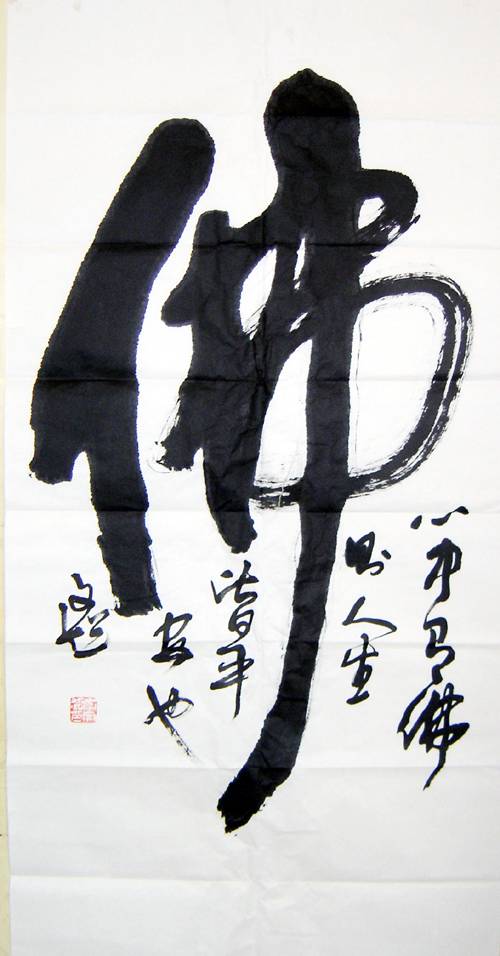 佛
心中有佛
则人生
皆平
安也